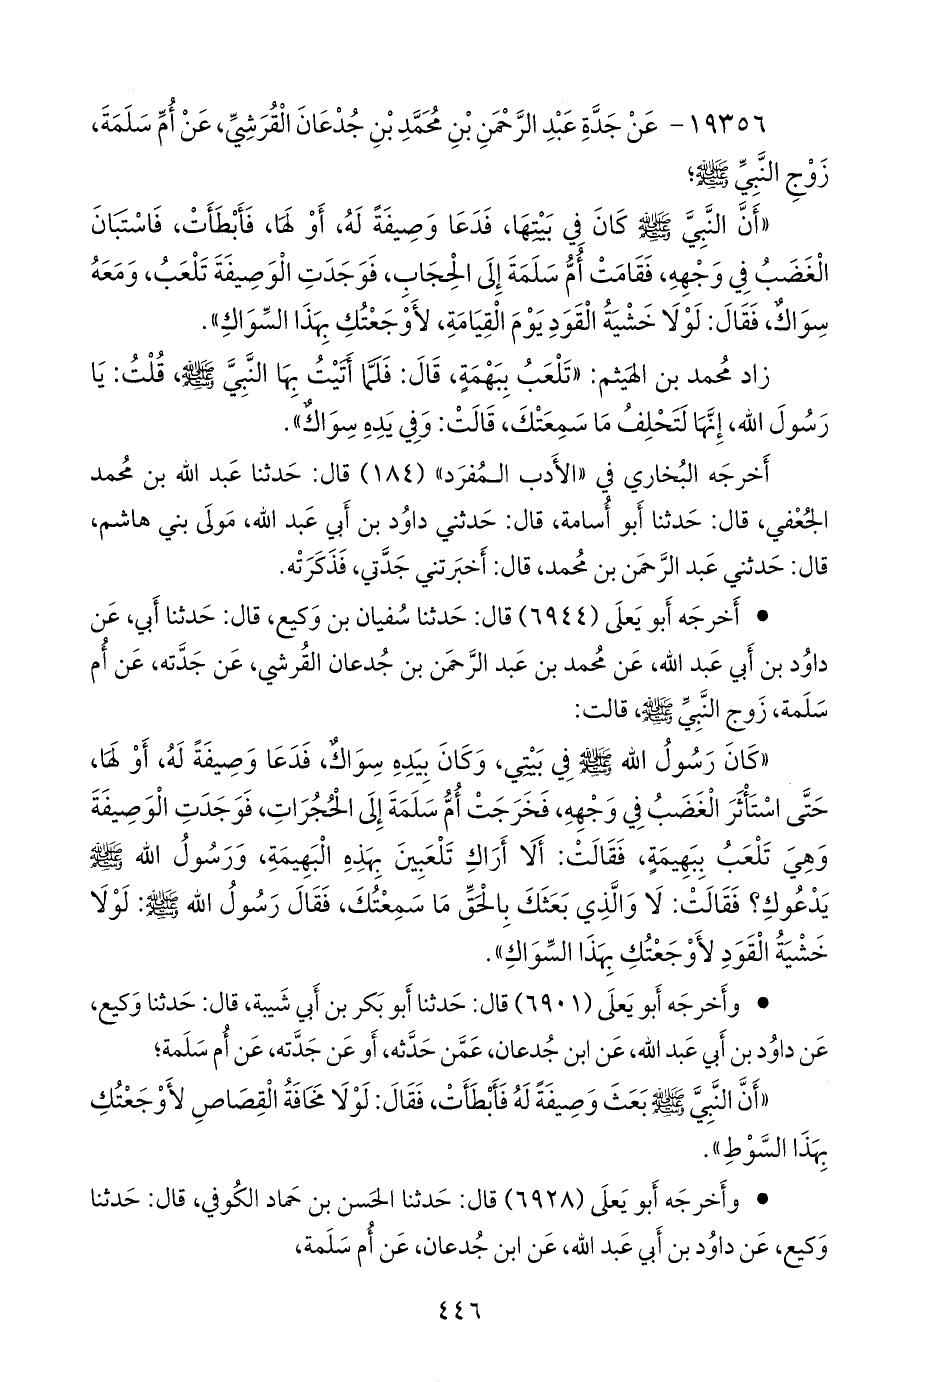 ١٩٣٥٦- عَنْ جَدَّةِ عَبْدِ الرَّحْمَنِ بْنِ مُحَمَّدِ بْنِ جُدْعَانَ الْقُرَشِيِّ، عَنْ أُمِّ سَلَمَةَ،
زَوْجِ النَّبِيِّ ﷺ؛
«أَنَّ النَّبِيَّ ﷺ كَانَ فِي بَيْتِهَا، فَدَعَا وَصِيفَةً لَهُ، أَوْ لَهَا، فَأَبْطَأَتْ، فَاسْتَبَانَ
الْغَضَبُ فِي وَجْهِهِ، فَقَامَتْ أُمُّ سَلَمَةَ إِلَى الْحِجَابِ، فَوَجَدَتِ الْوَصِيفَةَ تَلْعَبُ، وَمَعَهُ
سِوَاكٌ، فَقَالَ: لَوْلَا خَشْيَةُ الْقَوَدِ يَوْمَ الْقِيَامَةِ، لأَوْجَعْتُكِ بِهَذَا السِّوَاكِ».
زاد مُحمد بن الهيثم: «تَلْعَبُ بِبَهْمَةٍ، قَالَ: فَلَمَّا أَتَيْتُ بِهَا النَّبِيَّ ﷺ، قُلْتُ: يَا
رَسُولَ الله، إِنَّهَا لَتَحْلِفُ مَا سَمِعَتْكَ، قَالَتْ: وَفِي يَدِهِ سِوَاكٌ».
أَخرجَه البُخاري في «الأَدب الـمُفرَد» (١٨٤) قال: حَدثنا عَبد الله بن مُحمد
الجُعْفي، قال: حَدثنا أَبو أُسامة، قال: حَدثني داوُد بن أَبي عَبد الله، مَولَى بني هاشم،
قال: حَدثني عَبد الرَّحمَن بن مُحمد، قال: أَخبَرتني جَدَّتي، فَذَكَرَتْه.
• أَخرجَه أَبو يَعلَى (٦٩٤٤) قال: حَدثنا سُفيان بن وَكيع، قال: حَدثنا أَبي، عَن
داوُد بن أَبي عَبد الله، عَن مُحمد بن عَبد الرَّحمَن بن جُدعان القُرشي، عَن جَدَّته، عَن أُم
سَلَمة، زَوج النَّبيِّ ﷺ، قالت:
«كَانَ رَسُولُ الله ﷺ فِي بَيْتِي، وَكَانَ بِيَدِهِ سِوَاكٌ، فَدَعَا وَصِيفَةً لَهُ، أَوْ لَهَا،
حَتَّى اسْتَأْثَرَ الْغَضَبُ فِي وَجْهِهِ، فَخَرَجَتْ أُمُّ سَلَمَةَ إِلَى الْحُجُرَاتِ، فَوَجَدَتِ الْوَصِيفَةَ
وَهِيَ تَلْعَبُ بِبَهِيمَةٍ، فَقَالَتْ: أَلَا أَرَاكِ تَلْعَبِينَ بِهَذِهِ الْبَهِيمَةِ، وَرَسُولُ الله ﷺ
يَدْعُوكِ؟ فَقَالَتْ: لَا وَالَّذِي بَعَثَكَ بِالْحَقِّ مَا سَمِعْتُكَ، فَقَالَ رَسُولُ الله ﷺ: لَوْلَا
خَشْيَةُ الْقَوَدِ لأَوْجَعْتُكِ بِهَذَا السِّوَاكِ».
• وأَخرجَه أَبو يَعلَى (٦٩٠١) قال: حَدثنا أَبو بَكر بن أَبي شَيبة، قال: حَدثنا وَكيع،
عَن داوُد بن أَبي عَبد الله، عَن ابن جُدعان، عَمَّن حَدَّثه، أَو عَن جَدَّته، عَن أُم سَلَمة؛
«أَنَّ النَّبِيَّ ﷺ بَعَثَ وَصِيفَةً لَهُ فَأَبْطَأَتْ، فَقَالَ: لَوْلَا مَخَافَةُ الْقِصَاصِ لأَوْجَعْتُكِ
بِهَذَا السَّوْطِ».
• وأَخرجَه أَبو يَعلَى (٦٩٢٨) قال: حَدثنا الحَسن بن حَماد الكُوفي، قال: حَدثنا
وَكيع، عَن داوُد بن أَبي عَبد الله، عَن ابن جُدعان، عَن أُم سَلَمة،
٤٤٦